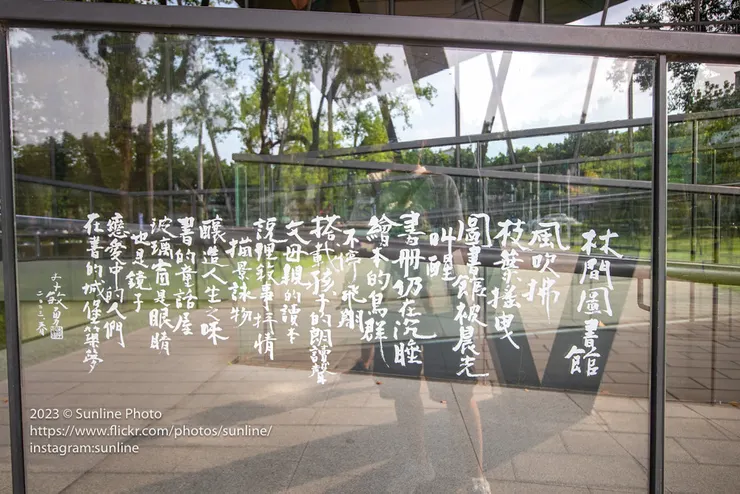 林間圖書館
風吹拂
枝葉搖曳
圖書館被晨光
叫醒
書冊仍在沉睡
繪本的鳥群
不停飛翔
搭載孩子的朗讀聲
父母親的讀本
說理敘事抒情
描景詠物
釀造人生之味
書的童話屋
玻璃窗是眼睛
也是鏡子
戀愛中的人們
在書的城堡築夢
2023 © Sunline Photo
https://www.flickr.com/photos/sunline/
instagram:sunline